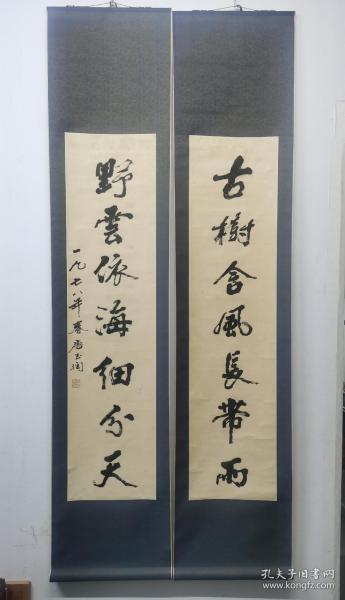 古樹含風長帶雨
野雲依海細分天
一九七八年春唐玉潤
孔夫子旧书网